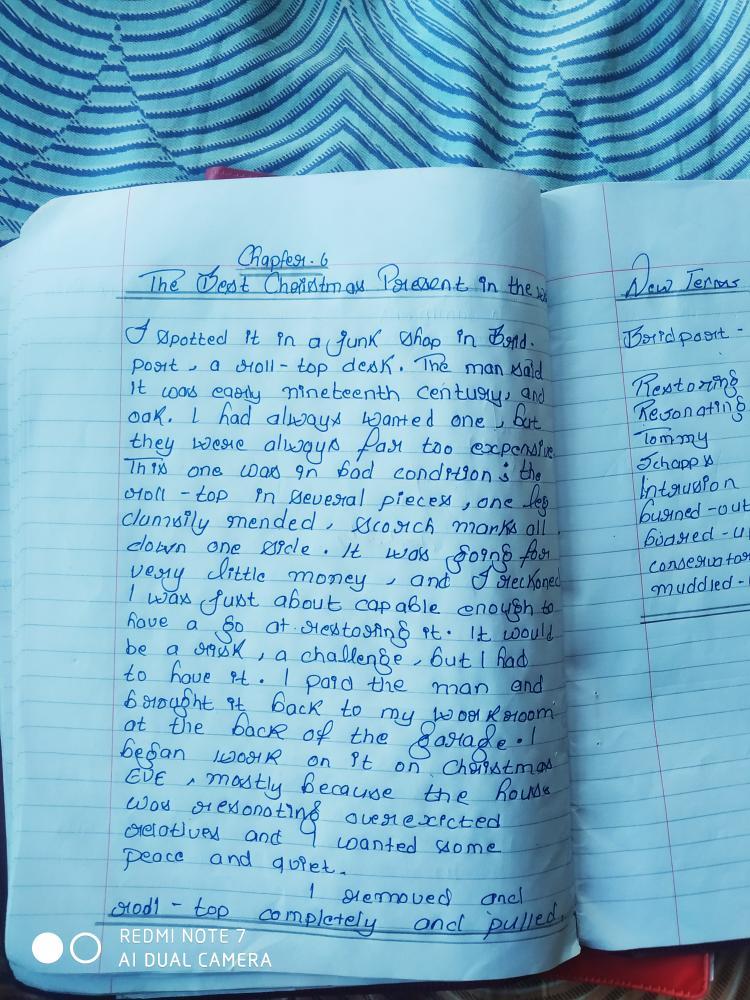 Chapter-6
The Best Christmas Present in the
I spotted it in a junk shop in Brid-
port, a roll-top desk. The man said
it was early nineteenth century, and
oak. I had always wanted one, but
they were always far too expensive
This one was in bad condition; the
roll-top in several pieces, one leg
clumsily mended, scorch marks all
down one side. It was going for
very little money, and I reckoned
I was just about capable enough to
have a go at restoring it. It would
be a risk, a challenge, but I had
to have it. I paid the man and
brought it back to my workroom
at the back of the garage. I
began work on it on Christmas
EVE, mostly because the house
was resonating overexicted
relatives and I wanted some
peace and quiet.
I removed and
rodl-top completely and pulled
New Terms
Bridport -
Restoring
Resonating
Tommy
Schapps
Intrusion
burned-out
boared-u
conservator
muddled-
REDMI NOTE 7
AI DUAL CAMERA